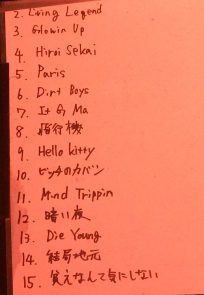 2. Living Legend
3. Glowin Up
4. Hiroi Sekai
5. Paris
6. Dirt Boys
7. It G Ma
8. 飛行機
9. Hello kitty
10. ビッチのカバン
11. Mind Trippin
12. 暗い夜
13. Die Young
14. 結局地元
15. 貧乏なんて気にしない